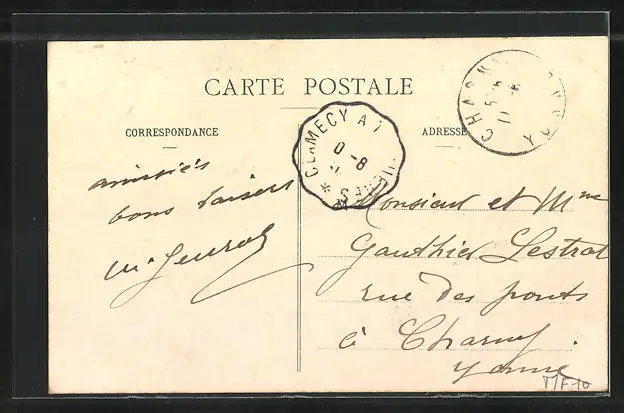 CARTE POSTALE
CORRESPONDANCE
ADRESSE
CLAMECY A
0-8
CHARNY
YONNE
amitiés
bons baisers
Monsieur et Mme
Gauthier Lestrat
rue des ponts
à Charny
Yonne